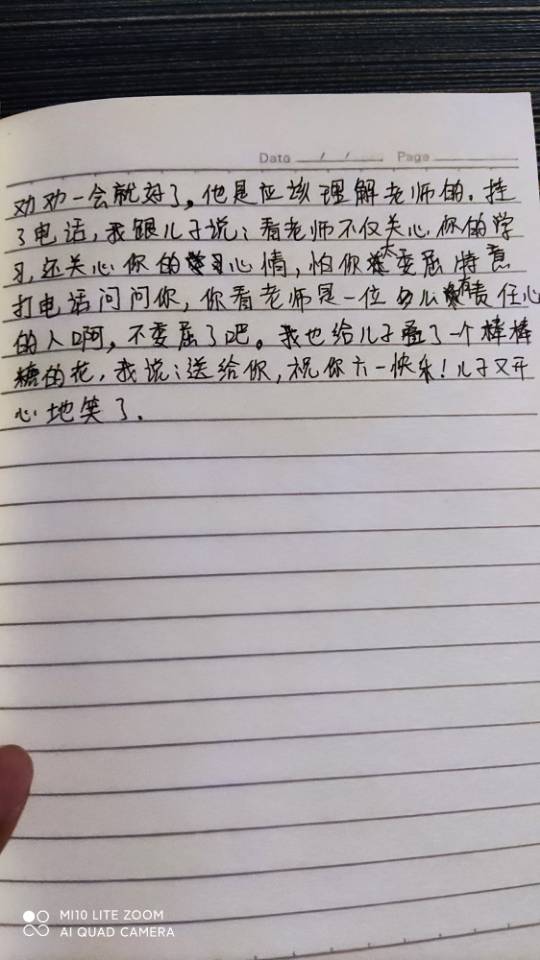 Date / / Page
劝劝一会就好了。他是应该理解老师的。挂
了电话，我跟儿子说：看老师不仅关心你的学
习，还关心你的心情，怕你太委屈特意
打电话问问你，你看老师是一位多么有责任心
的人啊，不委屈了吧。我也给儿子叠了一个棒棒
糖的花，我说：送给你，祝你六一快乐！儿子又开
心地笑了.
MI10 LITE ZOOM
AI QUAD CAMERA